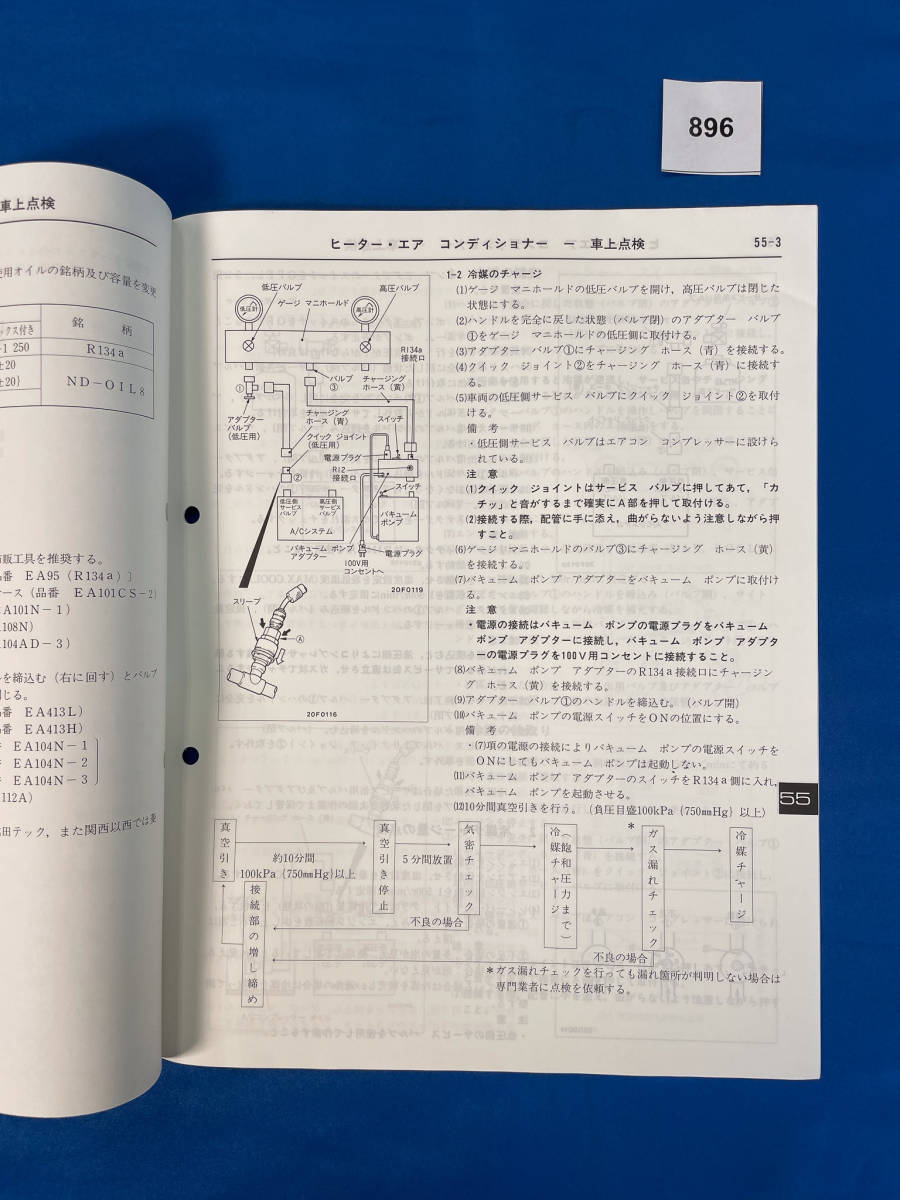 896
車上点検
使用オイルの銘柄及び容量を変更
ックス付き
銘 柄
-1 250
R134a
±20
±20}
ND-OIL8
市販工具を推奨する。
品番 EA95 (R134a)〕
ケース (品番 EA101CS-2)
EA101N-1)
A108N)
A104AD-3)
ルを締込む (右に回す) とバルブ
閉じる。
品番 EA413L)
品番 EA413H)
番 EA104N-1
番 EA104N-2
番 EA104N-3
A112A)
富田テック, また関西以西では東
ヒーター・エア コンディショナー － 車上点検
55-3
低圧バルブ
高圧バルブ
ゲージ マニホールド
低圧計
高圧計
R134a
接続口
①
バルブ
③
チャージング
ホース (黄)
アダプター
バルブ
(低圧用)
チャージング
ホース (青)
スイッチ
クイック ジョイント
(低圧用)
電源プラグ
②
R12
接続口
スイッチ
低圧側
サービス
バルブ
高圧側
サービス
バルブ
A/Cシステム
バキューム
ポンプ
バキューム ポンプ
アダプター
電源プラグ
100V用
コンセントへ
20F0119
スリーブ
Ⓐ
20F0116
1-2 冷媒のチャージ
(1)ゲージ マニホールドの低圧バルブを開け, 高圧バルブは閉じた
状態にする。
(2)ハンドルを完全に戻した状態 (バルブ閉) のアダプター バルブ
①をゲージ マニホールドの低圧側に取付ける。
(3)アダプター バルブ①にチャージング ホース (青) を接続する。
(4)クイック ジョイント②をチャージング ホース (青) に接続す
る。
(5)車両の低圧側サービス バルブにクイック ジョイント②を取付
ける。
備 考
・低圧側サービス バルブはエアコン コンプレッサーに設けら
れている。
注 意
(1)クイック ジョイントはサービス バルブに押してあて, 「カ
チッ」と音がするまで確実にA部を押して取付ける。
(2)接続する際, 配管に手に添え, 曲がらないよう注意しながら押
すこと。
(6)ゲージ マニホールドのバルブ③にチャージング ホース (黄)
を接続する。
(7)バキューム ポンプ アダプターをバキューム ポンプに取付け
る。
注 意
・電源の接続はバキューム ポンプの電源プラグをバキューム
ポンプ アダプターに接続し, バキューム ポンプ アダプタ
ーの電源プラグを100V用コンセントに接続すること。
(8)バキューム ポンプ アダプターのR134a接続口にチャージン
グ ホース (黄) を接続する。
(9)アダプター バルブ①のハンドルを締込む。(バルブ開)
(10)バキューム ポンプの電源スイッチをONの位置にする。
備 考
・(7)項の電源の接続によりバキューム ポンプの電源スイッチを
ONにしてもバキューム ポンプは起動しない。
(11)バキューム ポンプ アダプターのスイッチをR134a側に入れ,
バキューム ポンプを起動させる。
(12)10分間真空引きを行う。(負圧目盛100kPa {750mmHg} 以上)
55
真空引き
約10分間
100kPa {750mmHg}以上
真空引き停止
5分間放置
気密チェック
冷媒チャージ
(飽和圧力まで)
*
ガス漏れチェック
冷媒チャージ
接続部の増し締め
不良の場合
不良の場合
*ガス漏れチェックを行っても漏れ箇所が判明しない場合は
専門業者に点検を依頼する。